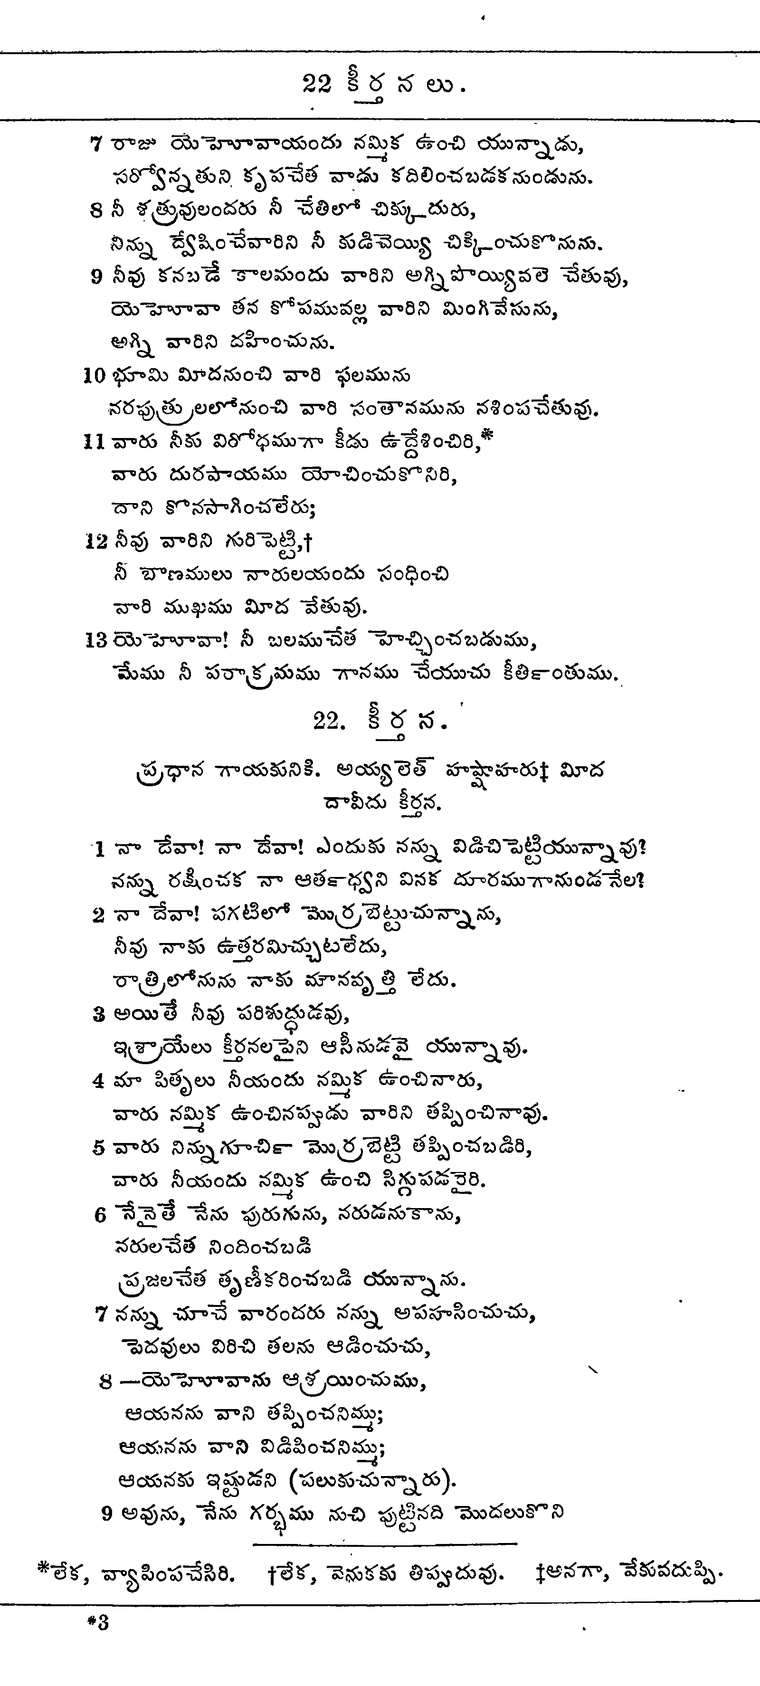 22 కీర్తనలు.
7 రాజు యెహోవాయందు నమ్మిక ఉంచి యున్నాడు,
సర్వోన్నతుని కృపచేత వాడు కదిలించబడకనుండును.
8 నీ శత్రువులందరు నీ చేతిలో చిక్కుదురు,
నిన్ను ద్వేషించేవారిని నీ కుడిచెయ్యి చిక్కించుకొనును.
9 నీవు కనబడే కాలమందు వారిని అగ్నిపొయ్యివలె చేతువు,
యెహోవా తన కోపమువల్ల వారిని మింగివేసును,
అగ్ని వారిని దహించును.
10 భూమి మీదనుంచి వారి ఫలమును
నరపుత్రులలోనుంచి వారి సంతానమును నశింపచేతువు.
11 వారు నీకు విరోధముగా కీడు ఉద్దేశించిరి,*
వారు దురపాయము యోచించుకొనిరి,
దాని కొనసాగించలేరు;
12 నీవు వారిని గురిపెట్టి,†
నీ బాణములు నారులయందు సంధించి
వారి ముఖము మీద వేతువు.
13 యెహోవా! నీ బలముచేత హెచ్చించబడుము,
మేము నీ పరాక్రమము గానము చేయుచు కీతిൎంతుము.
22. కీర్తన.
ప్రధాన గాయకునికి. అయ్యలెత్ హష్షాహరు‡ మీద
దావీదు కీర్తన.
1 నా దేవా! నా దేవా! ఎందుకు నన్ను విడిచిపెట్టియున్నావు?
నన్ను రక్షించక నా ఆతൎధ్వని వినక దూరముగానుండనేల?
2 నా దేవా! పగటిలో మొర్రబెట్టుచున్నాను,
నీవు నాకు ఉత్తరమిచ్చుటలేదు,
రాత్రిలోనును నాకు మానవృత్తి లేదు.
3 అయితే నీవు పరిశుద్ధుడవు,
ఇశ్రాయేలు కీర్తనలపైని ఆసీనుడవై యున్నావు.
4 మా పితృలు నీయందు నమ్మిక ఉంచినారు,
వారు నమ్మిక ఉంచినప్పుడు వారిని తప్పించినావు.
5 వారు నిన్నుగూచిൎ మొర్రబెట్టి తప్పించబడిరి,
వారు నీయందు నమ్మిక ఉంచి సిగ్గుపడరైరి.
6 నేనైతే నేను పురుగును, నరుడనుకాను,
నరులచేత నిందించబడి
ప్రజలచేత తృణీకరించబడి యున్నాను.
7 నన్ను చూచే వారందరు నన్ను అపహసించుచు,
పెదవులు విరిచి తలను ఆడించుచు,
8 —యెహోవాను ఆశ్రయించుము,
ఆయనను వాని తప్పించనిమ్ము;
ఆయనను వాని విడిపించనిమ్ము;
ఆయనకు ఇష్టుడని (పలుకుచున్నారు).
9 అవును, నేను గర్భము నుచి పుట్టినది మొదలుకొని
*లేక, వ్యాపింపచేసిరి. †లేక, వెనుకకు తిప్పుదువు. ‡అనగా, వేకువదుప్పి.
*3